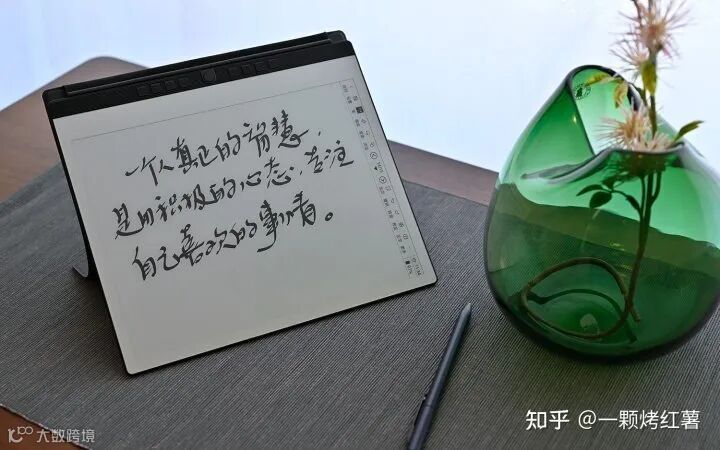 一个人真正的智慧，
是用积极的心态，关注
自己喜欢的事情。
知乎 @一颗烤红薯
10100 大数跨境